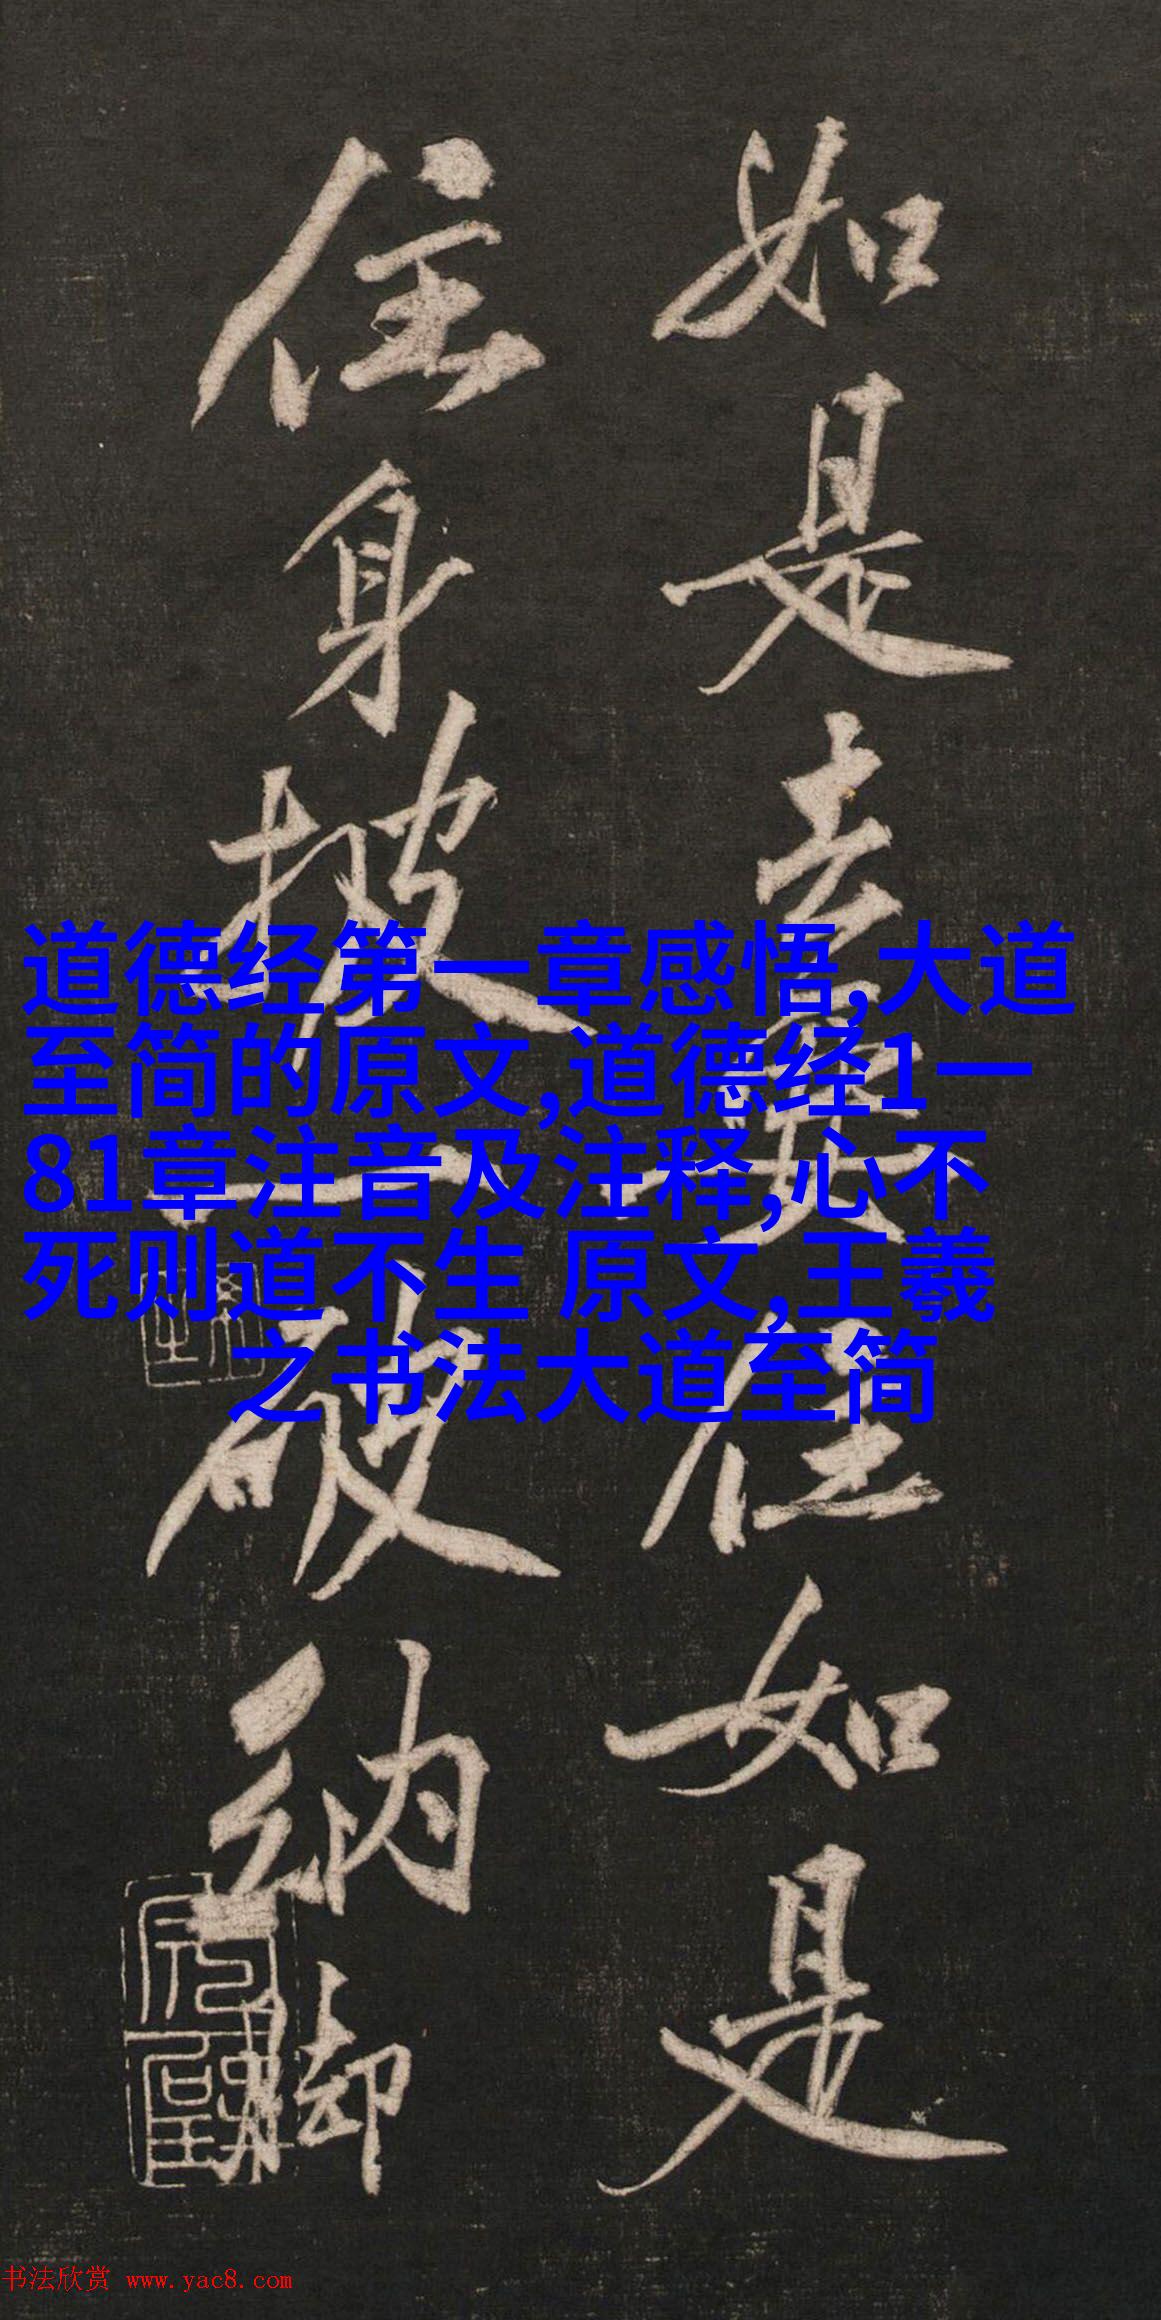 如是去要住如是
住身披一破衲脚
道德经第一章感悟,大道
至简的原文,道德经1一
81章注音及注释,心不
死则道不生 原文,王羲
之书法大道至简
书法欣赏 www.yac8.com